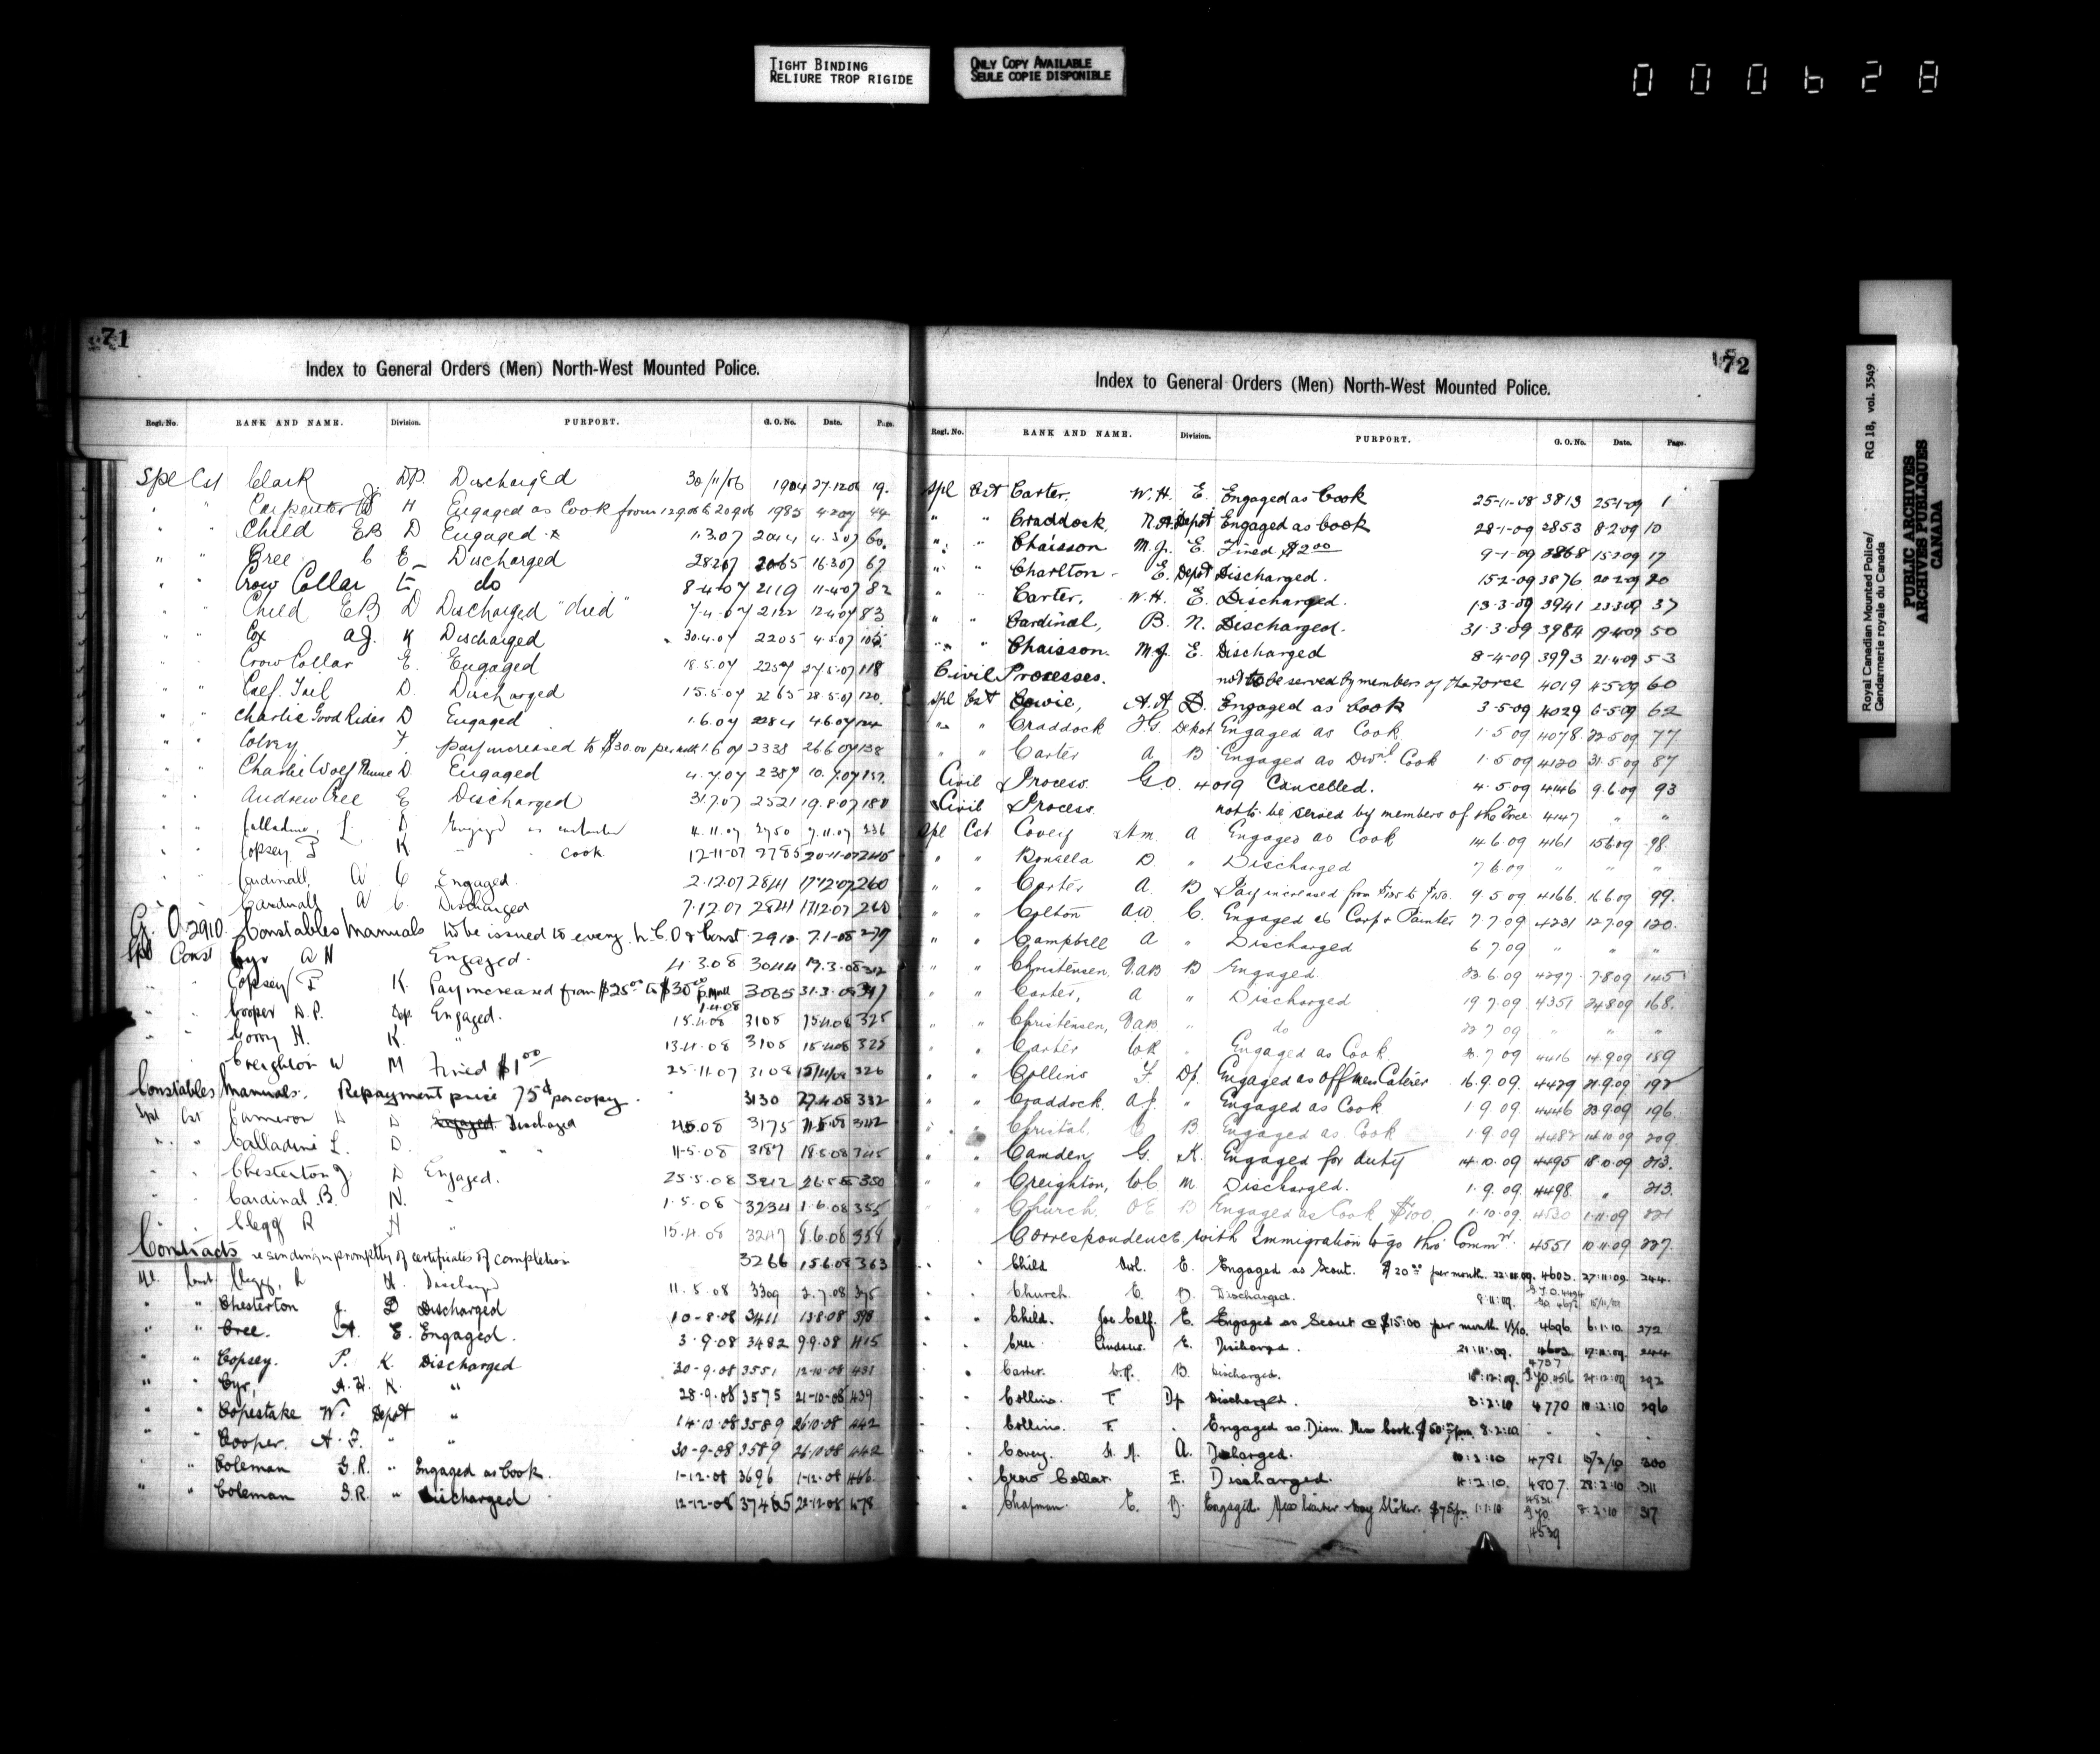 TIGHT BINDING
RELIURE TROP RIGIDE
ONLY COPY AVAILABLE
SEULE COPIE DISPONIBLE
000628
71
Index to General Orders (Men) North-West Mounted Police.
Regt. No. RANK AND NAME. Division. PURPORT. G. O. No. Date. Page.
Spl Cst Clark J. DP. Discharged 30/11/06 1904 27.12.06 19.
" " Carpenter H Engaged as Cook from 1985 44
Child EB D Engaged 1.3.07 2044 4.3.07 60.
" " Cree C E Discharged 28207 2065 16.3.07 67
" " Crow Collar E do 8-4-07 2119 11-4-07 82
" " Child EB D Discharged "died" 7-4-07 2122 12-4-07 83
" " Cox AJ. K Discharged 30.4.07 2205 4.5.07 105.
" " Crow Collar E. Engaged 18.5.07 2257 27.5.07 118
" " Calf Tail D. Discharged 15.5.07 2265 28.5.07 120.
" " Charlie Good Rider D Engaged 1.6.07 2284 4.6.07
" " Colvey F pay increased to $30.00 per mth 1.6.07 2338 26607 138
" " Charlie Wolf Plume D Engaged 4.7.07 2387 10.7.07 152.
" " Andrew Cree E Discharged 31.7.07 2521 19.8.07 180
" " Calladine, L. D Engaged as 4.11.07 2750 7.11.07 236
" " Copsey P K " " cook 12-11-07 2785 20-11-07 245
" " Cardinall, A C Engaged. 2.12.07 2841 17.12.07 260
" " Cardinall A C. Discharged 7.12.07 2841 17.12.07 260
G. O. 2910. Constables Manuals to be issued to every N.C.O & Const. 2910 7.1-08 279
Spl Const Cyr A H Engaged. 4.3.08 3044 19.3.08 312
" " Copsey P K. Pay increased from $25.00 to $30.00 p. mnth 3065 31.3.08 317
1.4.08
" " Cooper A.P. Dp. Engaged. 15.4.08 3105 15.4.08 325
" " Corry H. K. " 13.4.08 3105 15.4.08 325
" " Creighton W M Fined $1.00 25.11.07 3108 15/4/08 326
Constables Manuals. Repayment price 75¢ per copy. 3130 27.4.08 332
Spl Cst Cameron D D Engaged Discharged 4.5.08 3175 11.5.08 342
" " Calladine L. D. " " 11-5.08 3187 18.5.08 345
" " Chesterton J D Engaged. 25.5.08 3212 26.5.08 350
" " Cardinal B. N. " 1.5.08 3234 1.6.08 355
" " Clegg R H " 15.4.08 3247 8.6.08 358
Contracts re sending in promptly of certificates of completion 3266 15.6.08 363
Spl. Const Clegg, R H. Discharged 11.5.08 3309 2.7.08 375
" " Chesterton J. D Discharged 10-8-08 3411 13-8-08 398
" " Cree. A. E. Engaged. 3.9.08 3482 9.9.08 415
" " Copsey. P. K. Discharged 30-9.08 3551 12-10-08 431
" " Cyr, A.H. K. " 28.9.08 3575 21-10-08 439
" " Copestake W. Depot " 14.10.08 3589 26.10.08 442
" " Cooper. A.F. " " 30-9-08 3589 26.10.08 442
" " Coleman G.R. " Engaged as Cook. 1-12-08 3696 1-12-08 466.
" " Coleman G.R. " Discharged 12-12-08 21-12-08 478
72
Index to General Orders (Men) North-West Mounted Police.
Regt. No. RANK AND NAME. Division. PURPORT. G. O. No. Date. Page.
Spl Cst Carter, W.H. E. Engaged as Cook 25-11-08 3813 25-1-09 1
" " Craddock, N.A. Depot Engaged as Cook 28-1-09 3853 8-2-09 10
" " Chaisson M.J. E. Fined $2.00 9-1-09 3868 15.2.09 17
" " Charlton - E. Depot Discharged. 15.2-09 3876 20-2-09 20
" " Carter, W.H. E. Discharged. 13.3-09 3941 23.3.09 37
" " Cardinal, B. N. Discharged. 31.3.09 3984 19.4.09 50
" " Chaisson. M.J. E. Discharged 8-4-09 3993 21.4.09 53
Civil Processes. not to be served by members of the Force 4019 4-5-09 60
Spl Cst Cowie, A.A. D. Engaged as Cook 3-5-09 4029 6-5-09 62
" " Craddock F.G. Depot Engaged as Cook 1.5.09 4078. 22.5.09 77
" " Carter A B Engaged as Divnl Cook 1.5.09 4120 31.5.09 87
Civil Process. G.O. 4019 Cancelled. 4.5.09 4146 9.6.09 93
Civil Process. not to be served by members of the Force 4147 " "
Spl Cst Covey H.M. A Engaged as Cook 14.6.09 4161 15.6.09 98.
" " Bonella D. " Discharged 7.6.09 " " "
" " Carter A. B Pay increased from $125 to $150. 9.5.09 4166. 16.6.09 99.
" " Colton A.W. C. Engaged as Carp & Painter 7.7.09 4231 12.7.09 120.
" " Campbell A " Discharged 6.7.09 " " "
" " Christensen, B Engaged 23.6.09 4297. 7.8.09 145
" " Carter, A " Discharged 19.7.09 4351 24.8.09 168.
" " Christensen, " do 22.7.09 " " "
" " Carter WR " Engaged as Cook. 4416 14.9.09 189
" " Collins F. Dp. Engaged as Off Mess Caterer 16.9.09. 4429 21.9.09 192
" " Craddock. A.J. " Engaged as Cook 1.9.09. 4446 23.9.09 196.
" " Christal, C B Engaged as Cook 1.9.09 4482 14.10.09 209.
" " Camden, G. K. Engaged for duty 14.10.09 4495 18.10.09 213.
" " Creighton, WC M Discharged. 1.9.09. 4498. " 213.
" " Church, OE B Engaged as Cook $100. 1.10.09. 4530 1.11.09 221
Correspondence with Immigration to go thro' Commr. 4551 10.11.09 227.
" " Child Owl. E. Engaged as Scout. $20.00 per month. 22.11.09. 4603. 27.11.09. 244.
" " Church. E. D. Discharged. 9:11:09.
" " Child. Joe Calf. E. Engaged as Scout @ $15:00 per month 1/1/10. 4696. 6.1.10. 272
" " Cree Andrew. E. Discharged. 21:11:09. 4603 244
" " Carter. W.R. B. Discharged. 15:12:09. 4737 G.O. 4516 24:12:09 292
" " Collins. F. Dp Discharged. 3:2:10 4770 10:2:10 296
" " Collins. F. " Engaged as Divn. Mess Cook. $50.00 pm. 8.2.10. " " "
" " Covey. H. M. A. Discharged. 10:2:10 4791 15/2/10 300
" " Crow Collar. E. Discharged. 4:2:10. 4807. 28:2:10 311
" " Chapman. E. D. Engaged. $75 pm. 1:1:10 8.2.10 317
4539
Royal Canadian Mounted Police/ RG 18, vol. 3549
Gendarmerie royale du Canada
PUBLIC ARCHIVES
ARCHIVES PUBLIQUES
CANADA